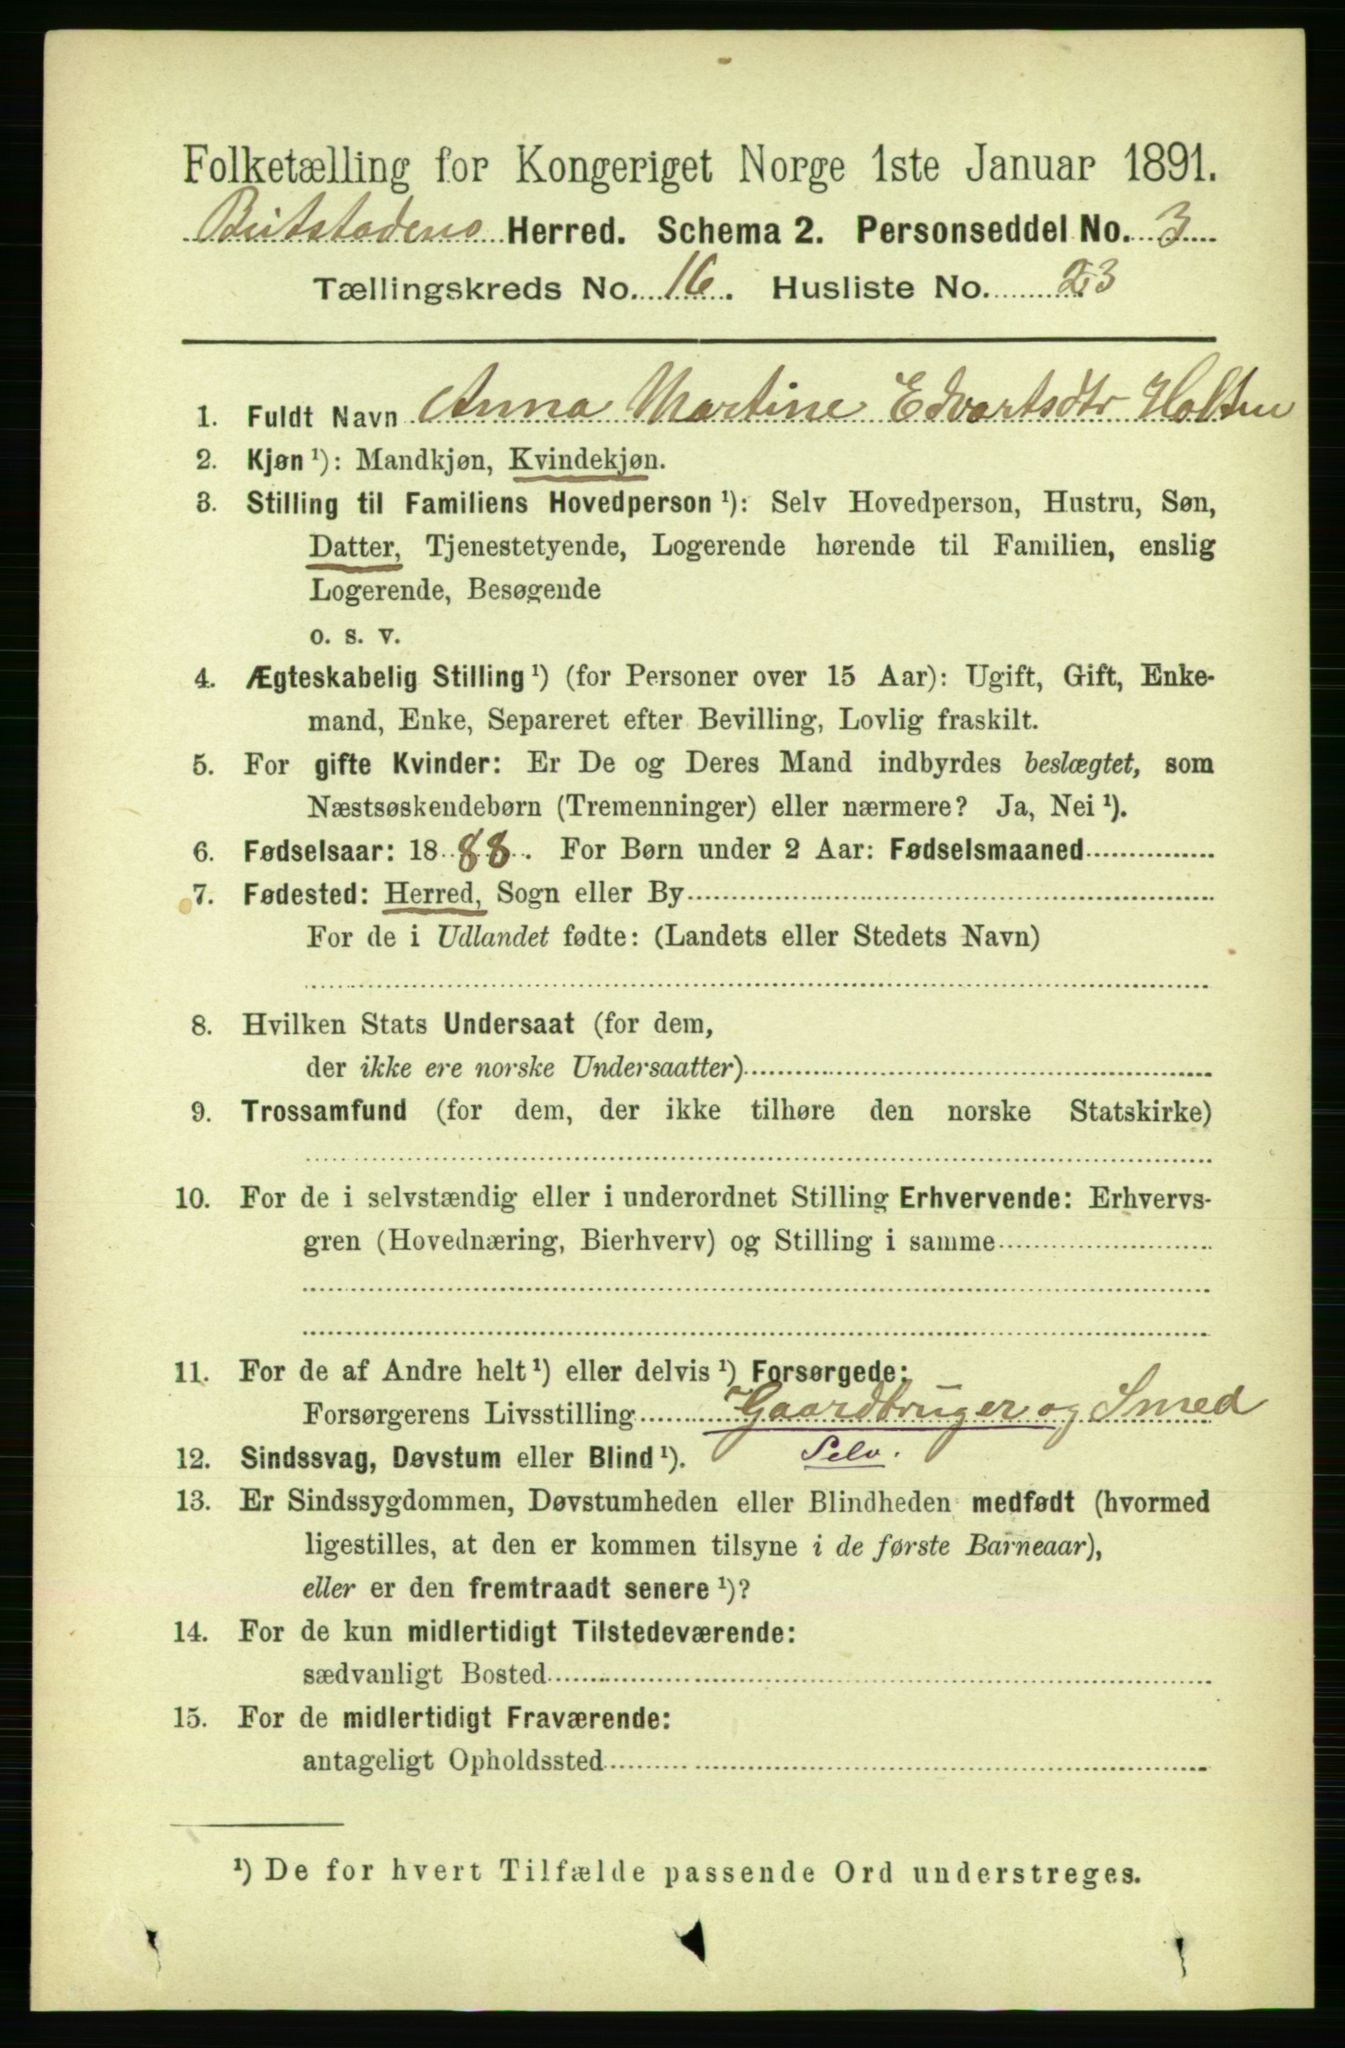 Folketælling for Kongeriget Norge 1ste Januar 1891.
Beitstadens Herred. Schema 2. Personseddel No. 3
Tællingskreds No. 16. Husliste No. 23
1. Fuldt Navn Anna Martine Edvartsdtr Holten
2. Kjøn ¹): Mandkjøn, Kvindekjøn.
3. Stilling til Familiens Hovedperson ¹): Selv Hovedperson, Hustru, Søn,
Datter, Tjenestetyende, Logerende hørende til Familien, enslig
Logerende, Besøgende
o. s. v.
4. Ægteskabelig Stilling ¹) (for Personer over 15 Aar): Ugift, Gift, Enke-
mand, Enke, Separeret efter Bevilling, Lovlig fraskilt.
5. For gifte Kvinder: Er De og Deres Mand indbyrdes beslægtet, som
Næstsøskendebørn (Tremenninger) eller nærmere? Ja, Nei ¹).
6. Fødselsaar: 1888. For Børn under 2 Aar: Fødselsmaaned
7. Fødested: Herred, Sogn eller By
For de i Udlandet fødte: (Landets eller Stedets Navn)
8. Hvilken Stats Undersaat (for dem,
der ikke ere norske Undersaatter)
9. Trossamfund (for dem, der ikke tilhøre den norske Statskirke)
10. For de i selvstændig eller i underordnet Stilling Erhvervende: Erhvervs-
gren (Hovednæring, Bierhverv) og Stilling i samme
11. For de af Andre helt ¹) eller delvis ¹) Forsørgede:
Forsørgerens Livsstilling Gaardbruger og Smed
12. Sindssvag, Døvstum eller Blind ¹). Selv.
13. Er Sindssygdommen, Døvstumheden eller Blindheden medfødt (hvormed
ligestilles, at den er kommen tilsyne i de første Barneaar),
eller er den fremtraadt senere ¹)?
14. For de kun midlertidigt Tilstedeværende:
sædvanligt Bosted
15. For de midlertidigt Fraværende:
antageligt Opholdssted
¹) De for hvert Tilfælde passende Ord understreges.